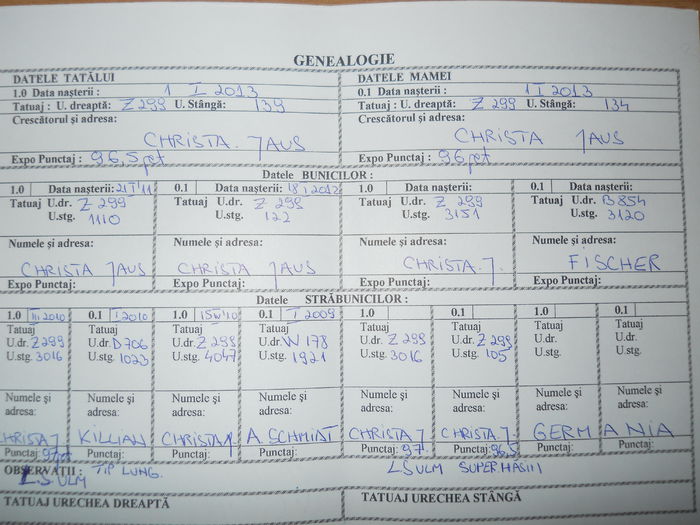 GENEALOGIE
DATELE TATĂLUI DATELE MAMEI
1.0 Data nașterii : 1 I 2013 0.1 Data nașterii : 1 I 2013
Tatuaj : U. dreaptă: Z 299 U. Stângă: 139 Tatuaj : U. dreaptă: Z 299 U. Stângă: 134
Crescătorul și adresa: Crescătorul și adresa:
CHRISTA. JAUS CHRISTA JAUS
Expo Punctaj : 96,5 pct Expo Punctaj : 96 pct
Datele BUNICILOR :
1.0 Data nașterii: 0.1 Data nașterii: 18 I 2012 1.0 Data nașterii: 0.1 Data nașterii:
Tatuaj U.dr. Z 299 Tatuaj U.dr. Z 299 Tatuaj U.dr. Z 299 Tatuaj U.dr. B 854
U.stg. 1110 U.stg. 122 U.stg. 3151 U.stg. 3120
Numele și adresa: Numele și adresa: Numele și adresa: Numele și adresa:
CHRISTA JAUS CHRISTA JAUS CHRISTA. J. FISCHER
Expo Punctaj: Expo Punctaj: Expo Punctaj: Expo Punctaj:
Datele STRĂBUNICILOR :
1.0 III 2010 0.1 I 2010 1.0 0.1 I 2009 1.0 0.1 1.0 0.1
Tatuaj Tatuaj Tatuaj Tatuaj Tatuaj Tatuaj Tatuaj Tatuaj
U.dr. Z 299 U.dr. D 706 U.dr. Z 299 U.dr. W 178 U.dr. Z 299 U.dr. Z 299 U.dr. U.dr.
U.stg. 3016 U.stg. 1023 U.stg. 4047 U.stg. 1921 U.stg. 3016 U.stg. 105 U.stg. U.stg.
Numele și Numele și Numele și Numele și Numele și Numele și Numele și Numele și
adresa: adresa: adresa: adresa: adresa: adresa: adresa: adresa:
CHRISTA J. KILLIAN CHRISTA J. A. SCHMIDT CHRISTA J CHRISTA J. GERMANIA
Punctaj: 97 pct Punctaj: Punctaj: Punctaj: Punctaj: 97. Punctaj: 96,5 Punctaj: Punctaj:
OBSERVAȚII : TIP LUNG. LS ULM SUPER MASIII
L.S ULM
TATUAJ URECHEA DREAPTĂ TATUAJ URECHEA STÂNGĂ